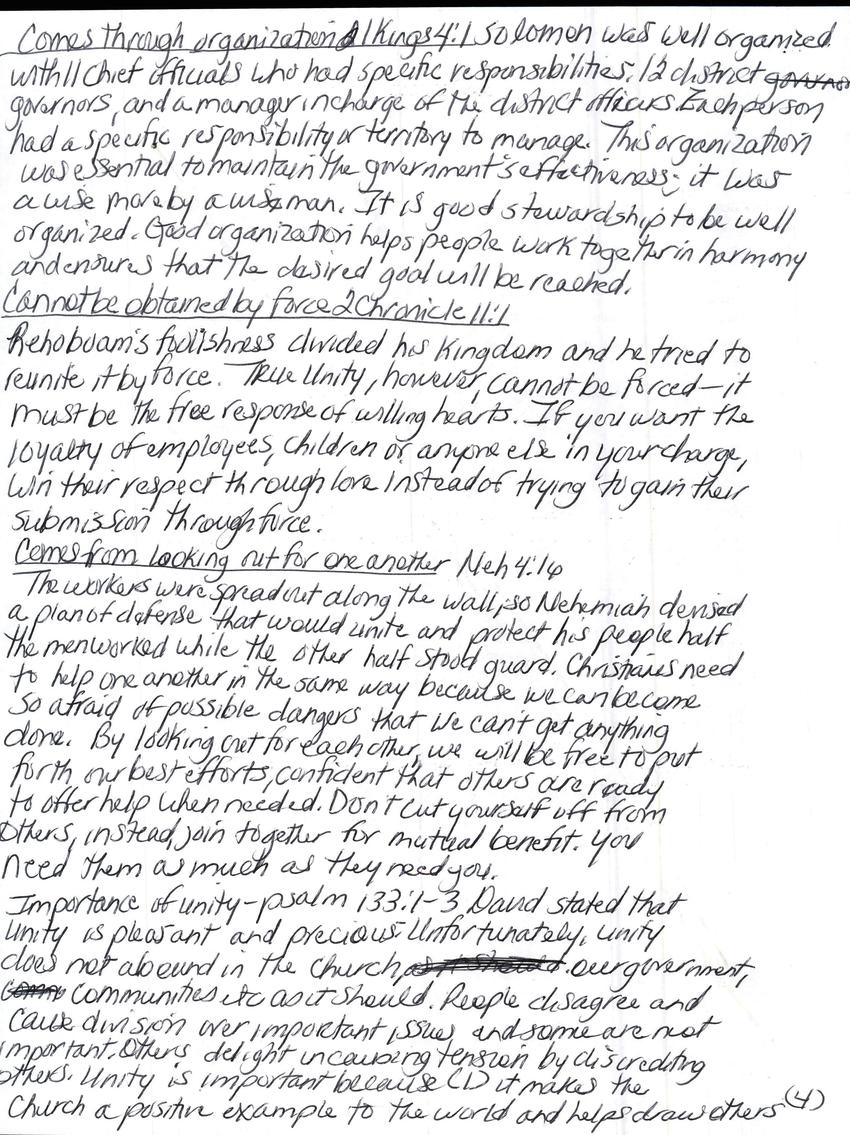 Comes through organization 1 Kings 4:1 Solomon was well organized
with 11 Chief officials who had specific responsibilities. 12 district governors
governors, and a manager in charge of the district officers. Each person
had a specific responsibility or territory to manage. This organization
was essential to maintain the government's effectiveness; it was
a wise move by a wise man. It is good stewardship to be well
organized. Good organization helps people work together in harmony
and ensures that the desired goal will be reached.
Cannot be obtained by force 2 Chronicle 11:1
Rehoboam's foolishness divided his Kingdom and he tried to
reunite it by force. True Unity, however, cannot be forced-it
must be the free response of willing hearts. If you want the
loyalty of employees, children or anyone else in your charge,
win their respect through love instead of trying to gain their
submission through force.
Comes from looking out for one another Neh 4:16
The workers were spread out along the wall, so Nehemiah devised
a plan of defense that would unite and protect his people half
the men worked while the other half stood guard. Christians need
to help one another in the same way because we can become
so afraid of possible dangers that we can't get anything
done. By looking out for each other, we will be free to put
forth our best efforts, confident that others are ready
to offer help when needed. Don't cut yourself off from
others, instead, join together for mutual benefit. You
need them as much as they need you.
Importance of unity-psalm 133:1-3 David stated that
unity is pleasant and precious Unfortunately, unity
does not abound in the church, as it should. our government,
Comm communities etc as it should. People disagree and
cause division over important issues and some are not
important. Others delight in causing tension by discrediting
others. Unity is important because (1) it makes the
Church a positive example to the world and helps draw others (4)